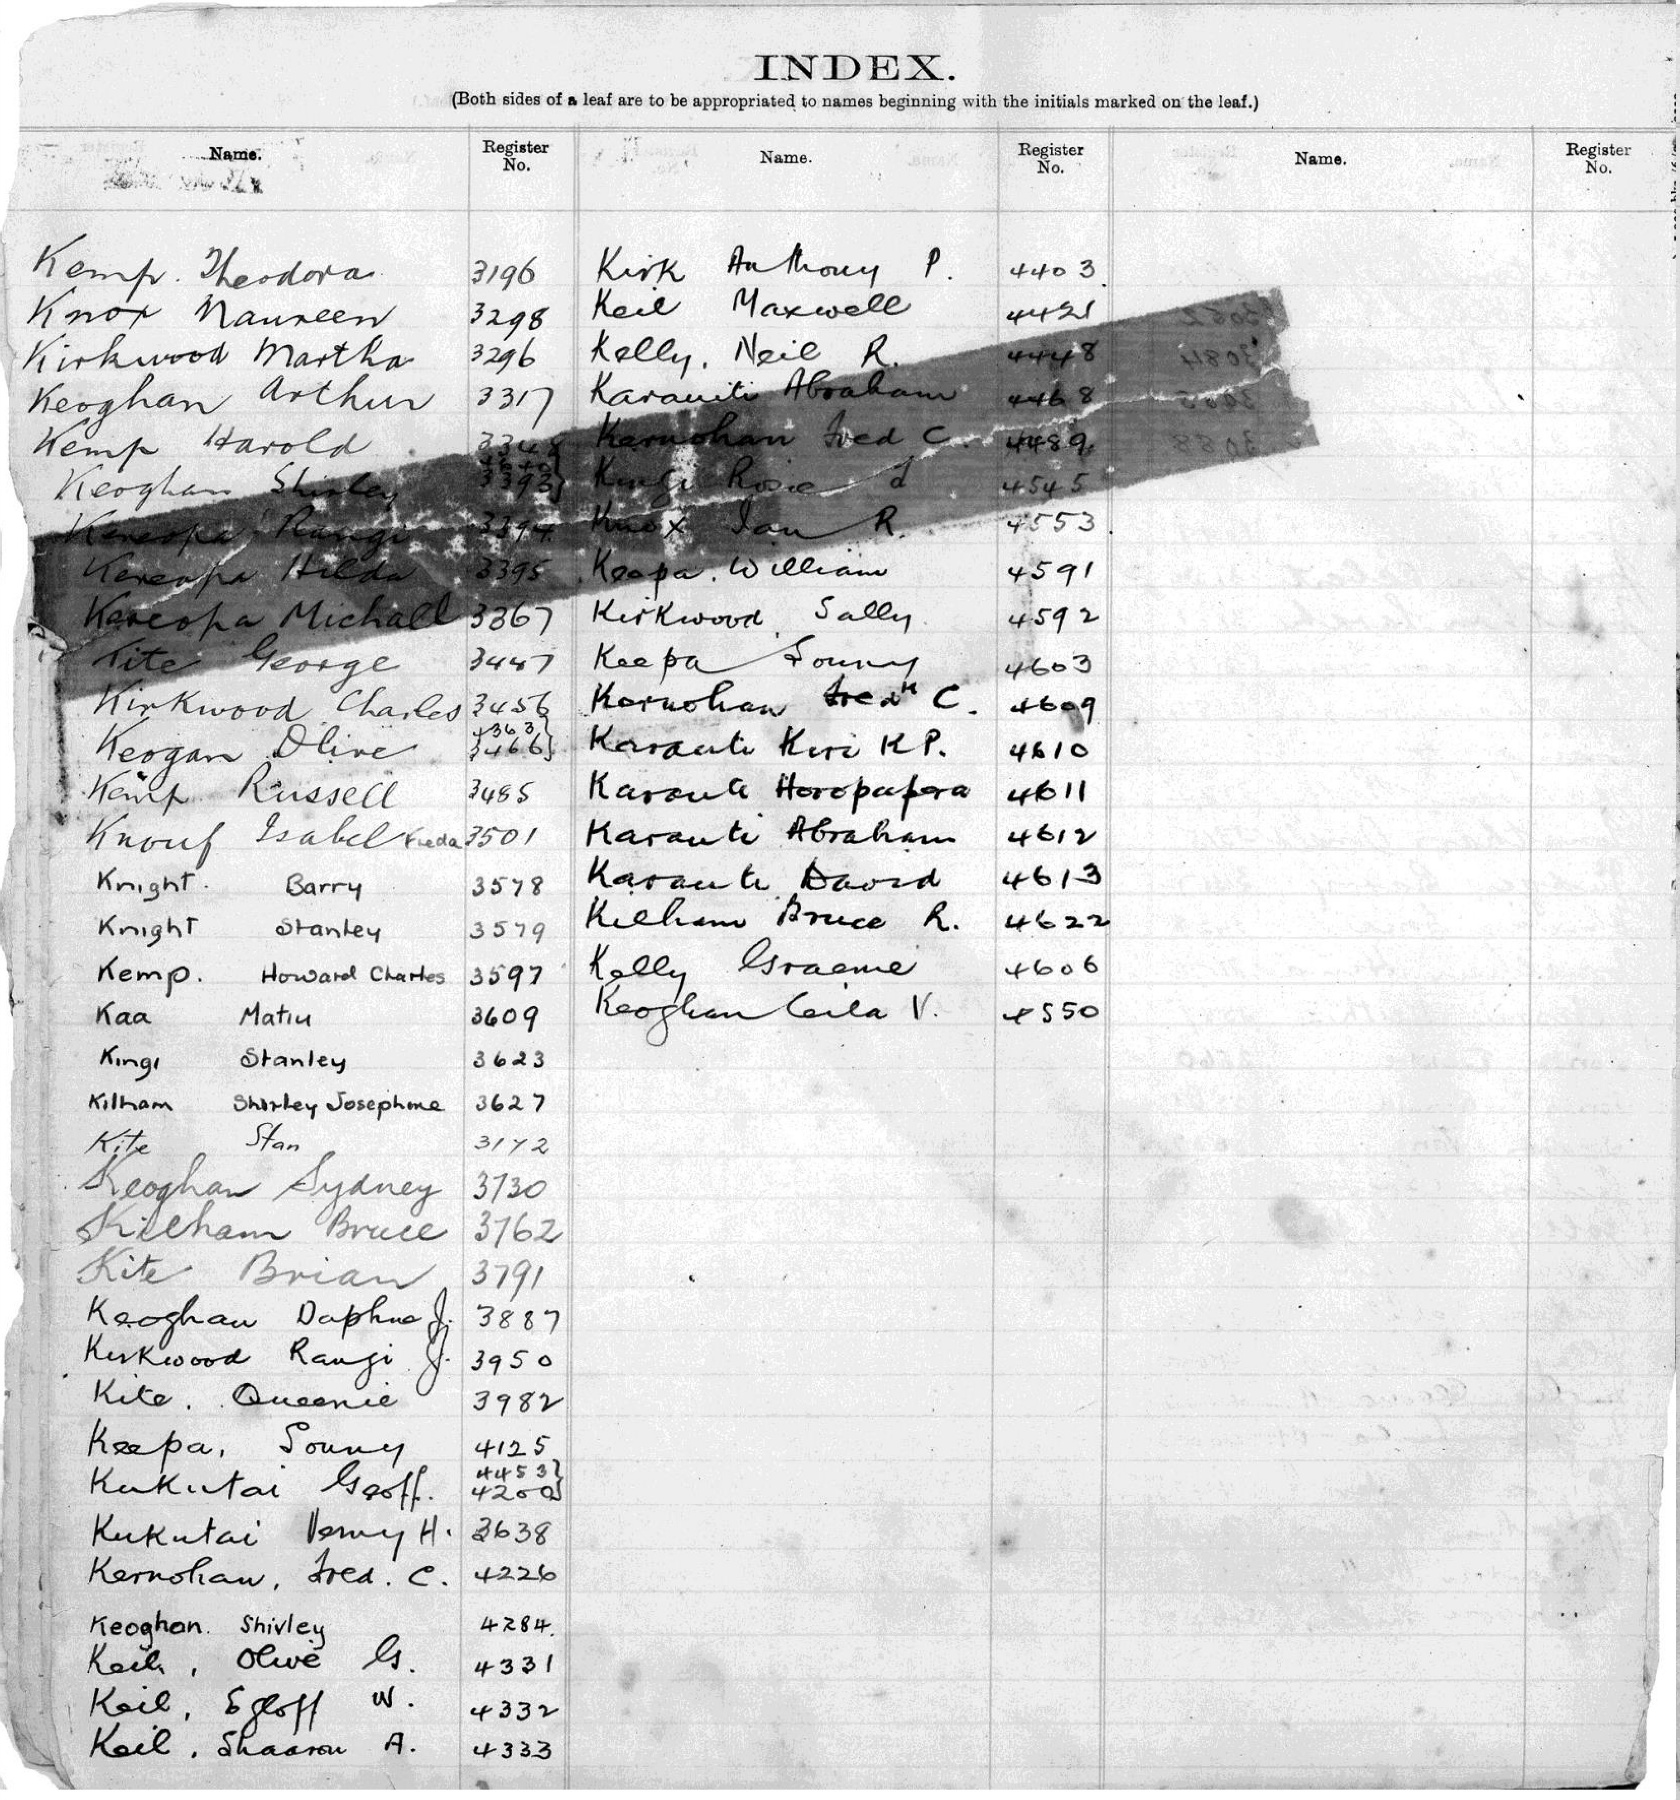 INDEX.
(Both sides of a leaf are to be appropriated to names beginning with the initials marked on the leaf.)
Name. Register No.
Kemp. Theodora 3196
Knox Naureen 3298
Kirkwood Martha 3296
Keoghan Arthur 3317
Kemp Harold 3348
Keoghan Shirley 3393}
Kereopa Rangi 3394
Kereopa Hilda 3395
Kereopa Michall 3367
Kite George 3447
Kirkwood Charles 3456
4363}
Keogan Olive 3466}
Kemp Russell 3485
Knouf Isabel Freda 3501
Knight. Barry 3578
Knight Stanley 3579
Kemp. Howard Charles 3597
Kaa Matiu 3609
Kingi Stanley 3623
Kilham Shirley Josephine 3627
Kite Stan 3172
Keoghan Sydney 3730
Kilham Bruce 3762
Kite Brian 3791
Keoghan Daphne J. 3887
Kirkwood Rangi J. 3950
Kite. Queenie 3982
Keepa, Sonny 4125
4453}
Kukutai Geoff. 4200}
Kukutai Henry H. 3638
Kernohan, Fred. C. 4226
Keoghan. Shirley 4284.
Keil, Olive G. 4331
Keil, Egloff W. 4332
Keil, Shaaron A. 4333
Name. Register No.
Kirk Anthony P. 4403
Keil Maxwell 4421
Kelly, Neil R. 4448
Karauti Abraham 4468
Kernohan Fred C. 4489
Kingi Rosie 4545
Knox Ian R. 4553
Keepa. William 4591
Kirkwood Sally 4592
Keepa Sonny 4603
Kernohan Fredk C. 4609
Karauti Kiri K P. 4610
Karauti Horopapera 4611
Karauti Abraham 4612
Karauti David 4613
Kilham Bruce R. 4622
Kelly Graeme 4606
Keoghan Ceila V. 4550
Name. Register No.